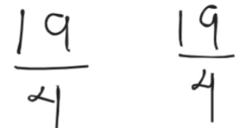 19/4 19/4